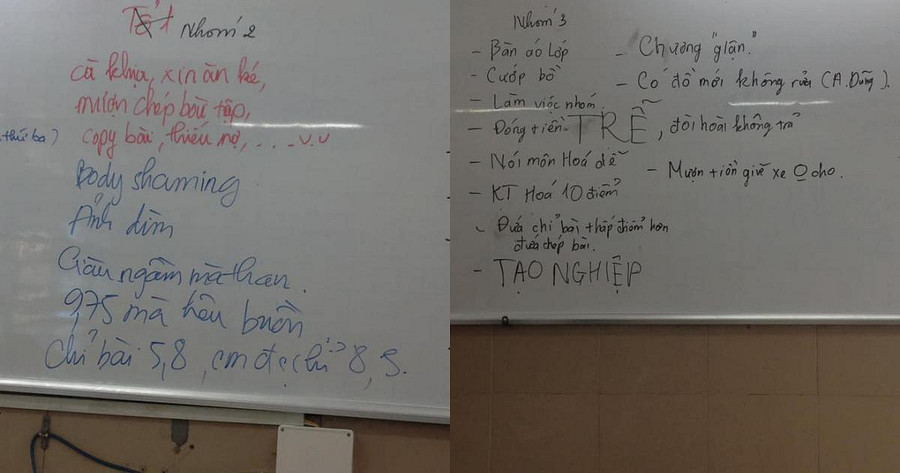 Tổ 1 Nhóm 2
cà khịa, xin ăn ké,
mượn chép bài tập,
thứ ba)
copy bài, thiếu nợ, . . . v.v
Body shaming
Ảnh dìm
Giàu ngầm mà than.
9,75 mà kêu buồn
Chỉ bài 5,8, em đc chỉ 8,5.
Nhóm 3
- Bàn áo lớp
- Cướp bồ
- Làm việc nhóm
- Đóng tiền TRỄ, đòi hoài không trả
- Nói môn Hoá dễ
- KT Hoá 10 điểm
- Đứa chỉ bài thấp điểm hơn
đứa chép bài.
- TẠO NGHIỆP
- Chương "giận."
- Có đồ mới không rửa (A. Dũng).
- Mượn tiền giữ xe O cho.